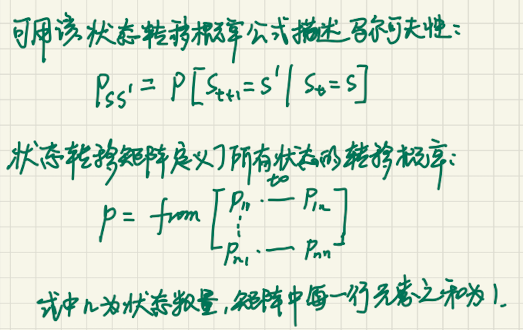 可用该状态转移概率公式描述马尔可夫性:
Pss' = P[St+1 = s' | St = s]
状态转移矩阵定义了所有状态的转移概率:
to
P = from [P11 ··· P1n
⋮
Pn1 ··· Pnn]
式中n为状态数量,矩阵中每一行元素之和为1.